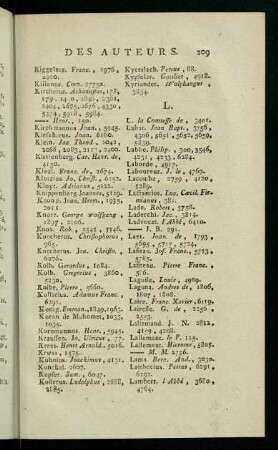 DES AUTEURS. 209
Kiggelaer. Franc., 1976,
2400.
Kilianus. Corn. 2775a.
Kircherus. Athanasius, 178,
179. 14 n, 1841, 2381,
2404, 2675, 2676, 4330
5374, 5918, 5984.
— Henr., 190.
Kirchmannus Joan., 5945.
Kirschius. Joan., 6160.
Klein. Jac. Theod., 2042,
2068, 2083, 2117, 2126.
Klettenberg. Car. Herr. de,
4150.
Kloal. Franc. de, 2674.
Kloszius Jo. Christi, 6152.
Kloyt. Adrianus, 5422.
Knippenberg Joannes, 5129.
Knoop, Joan. Herm., 1935,
2011.
Knorr. George wolffgang,
1897, 2166.
Knox. Rob., 5541, 7146.
Koecherus. Christophorus,
965.
Koecherus. Jo. Christo.,
6276.
Kolb. Gerardus, 1084.
Kolb. Gregorius, 3860,
5230.
Kolbe. Pierre, 5560.
Kollarius. Adamus Franc.,
6291.
Konig. Emman., 1849, 1965.
Koran de Mahomet, 1033,
1035.
Kornmannus. Henr., 5945.
Krausten. Jo. Ulricus, 77.
Kroes. Henri Arnold. 5016.
Kruss, 1575.
Kuhnius. Joachimus, 4131.
Kunckel. 2627.
Kupler. Sam., 6047.
Kusterus. Ludolphus, 2688,
2685.
Kyceslach. Petrus, 88.
Kypseler. Gottlieb, 4918.
Kyriander. Wolphangus,
5254.
L.
L. la Comtesse de, 3401.
Labat. Jean Bapt., 3756,
4306, 5651, 5650, 5659,
5693, 5717, 5720.
Labbe. Philip., 300, 3545,
4231, 4233, 6284.
Laborde. 4917.
Laboureur. J. le, 3469.
Lacombe, 3739, 4120,
5211.
Lactancius. Luc. Caecil. Fir-
mianus, 381.
Lade. Robert, 5738.
Laderchi. Jac., 217.
Ladvocat. l'Abbé, 6410.
— J. B. 291.
Laet. Joan. de, 1793,
5695, 5717, 5724.
Lafitau. Jos. Franc., 5713,
5735.
Lafreau. Pierre Franc.,
576.
Lagusse. Louis, 4909.
Laguna. Andres de, 1806,
1807, 1808.
Laire. Franc. Xavier, 6119.
Lairesse. G. de, 2250,
2253.
Lallemand. J. N. 2812,
4119, 4268.
Lallemant. le P. 115.
Lallemeur. Hieronym., 5805.
— M. M. 2756.
Lama. Bern. And., 3030.
Lambecius. Petrus, 6291,
6292.
Lambert. l'Abbé, 3680,
4764.